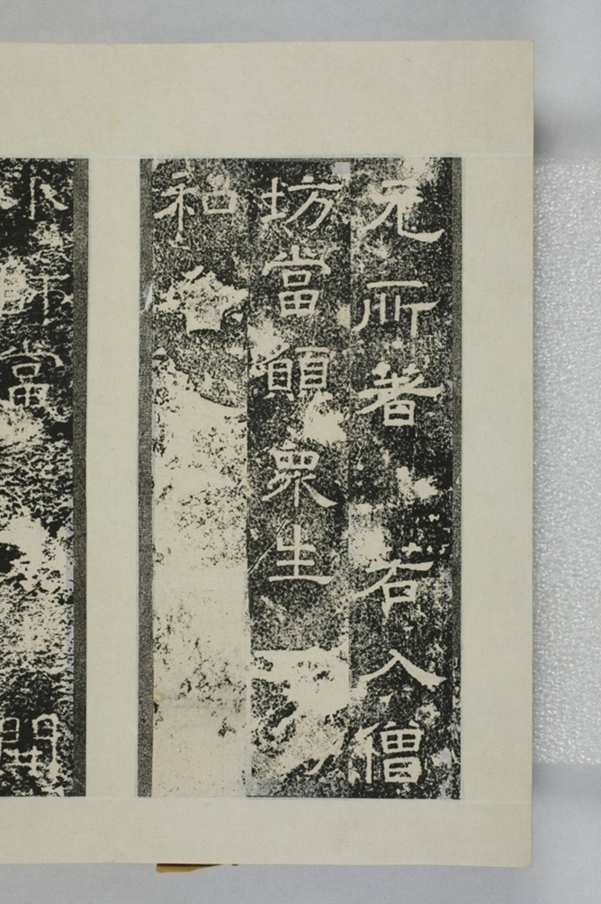 无所著 若入僧
坊當願衆生
和合
小師當 開